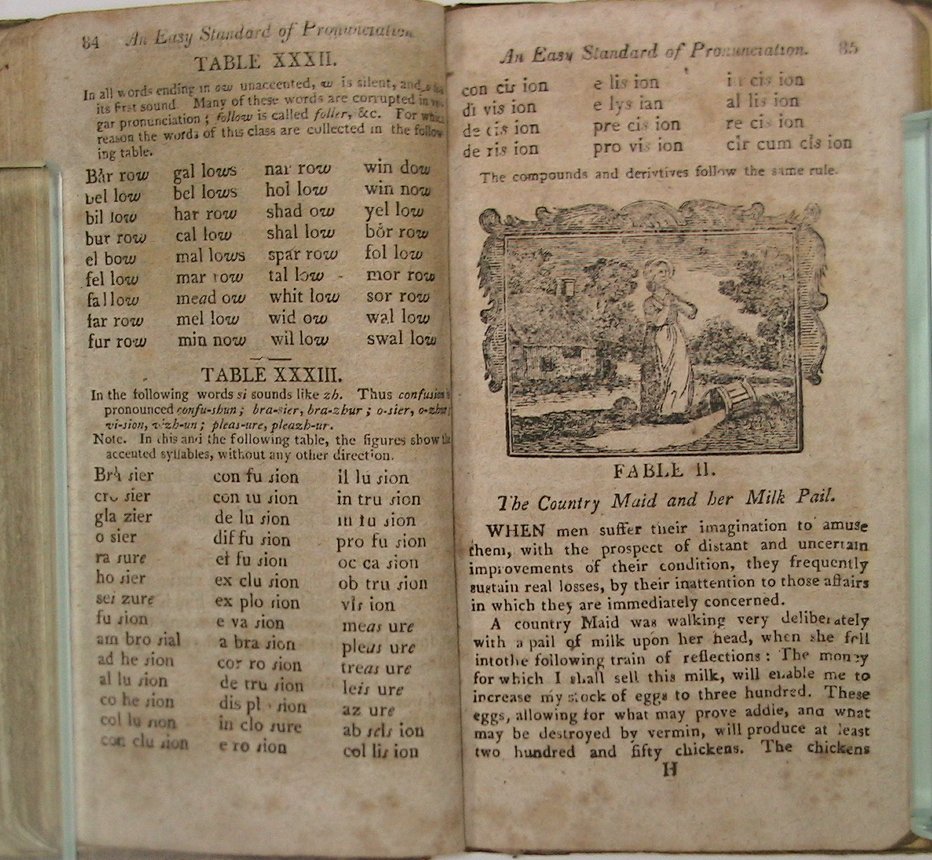 84 An Easy Standard of Pronunciation.
TABLE XXXII.
In all words ending in ow unaccented, w is silent, and
its first sound. Many of these words are corrupted in
gar pronunciation ; follow is called foller, &c. For which
reason the words of this class are collected in the follow
ing table.
Bar row gal lows nar row win dow
bel low bel lows hol low win now
bil low har row shad ow yel low
bur row cal low shal low bor row
el bow mal lows spar row fol low
fel low mar row tal low mor row
fal low mead ow whit low sor row
far row mel low wid ow wal low
fur row min now wil low swal low
TABLE XXXIII.
In the following words si sounds like zh. Thus confusion is
pronounced confu-zhun ; bra-sier, bra-zhur ; o-sier, o-zhur;
vi-sion, vizh-un ; pleas-ure, pleazh-ur.
Note. In this and the following table, the figures show the
accented syllables, without any other direction.
Bra sier con fu sion il lu sion
cro sier con tu sion in tru sion
gla zier de lu sion in fu sion
o sier dif fu sion pro fu sion
ra sure ef fu sion oc ca sion
ho sier ex clu sion ob tru sion
sei zure ex plo sion vis ion
fu sion e va sion meas ure
am bro sial a bra sion pleas ure
ad he sion cor ro sion treas ure
al lu sion de tru sion leis ure
co he sion dis pl sion az ure
col lu sion in clo sure ab scis ion
con clu sion e ro sion col lis ion
An Easy Standard of Pronunciation. 85
con cis ion e lis ion in cis ion
di vis ion e lys ian al lis ion
de cis ion pre cis ion re cis ion
de ris ion pro vis ion cir cum cis ion
The compounds and derivtives follow the same rule.
FABLE II.
The Country Maid and her Milk Pail.
WHEN men suffer their imagination to amuse
them, with the prospect of distant and uncertain
improvements of their condition, they frequently
sustain real losses, by their inattention to those affairs
in which they are immediately concerned.
A country Maid was walking very deliberately
with a pail of milk upon her head, when she fell
intothe following train of reflections : The money
for which I shall sell this milk, will enable me to
increase my stock of eggs to three hundred. These
eggs, allowing for what may prove addle, and what
may be destroyed by vermin, will produce at least
two hundred and fifty chickens. The chickens
H